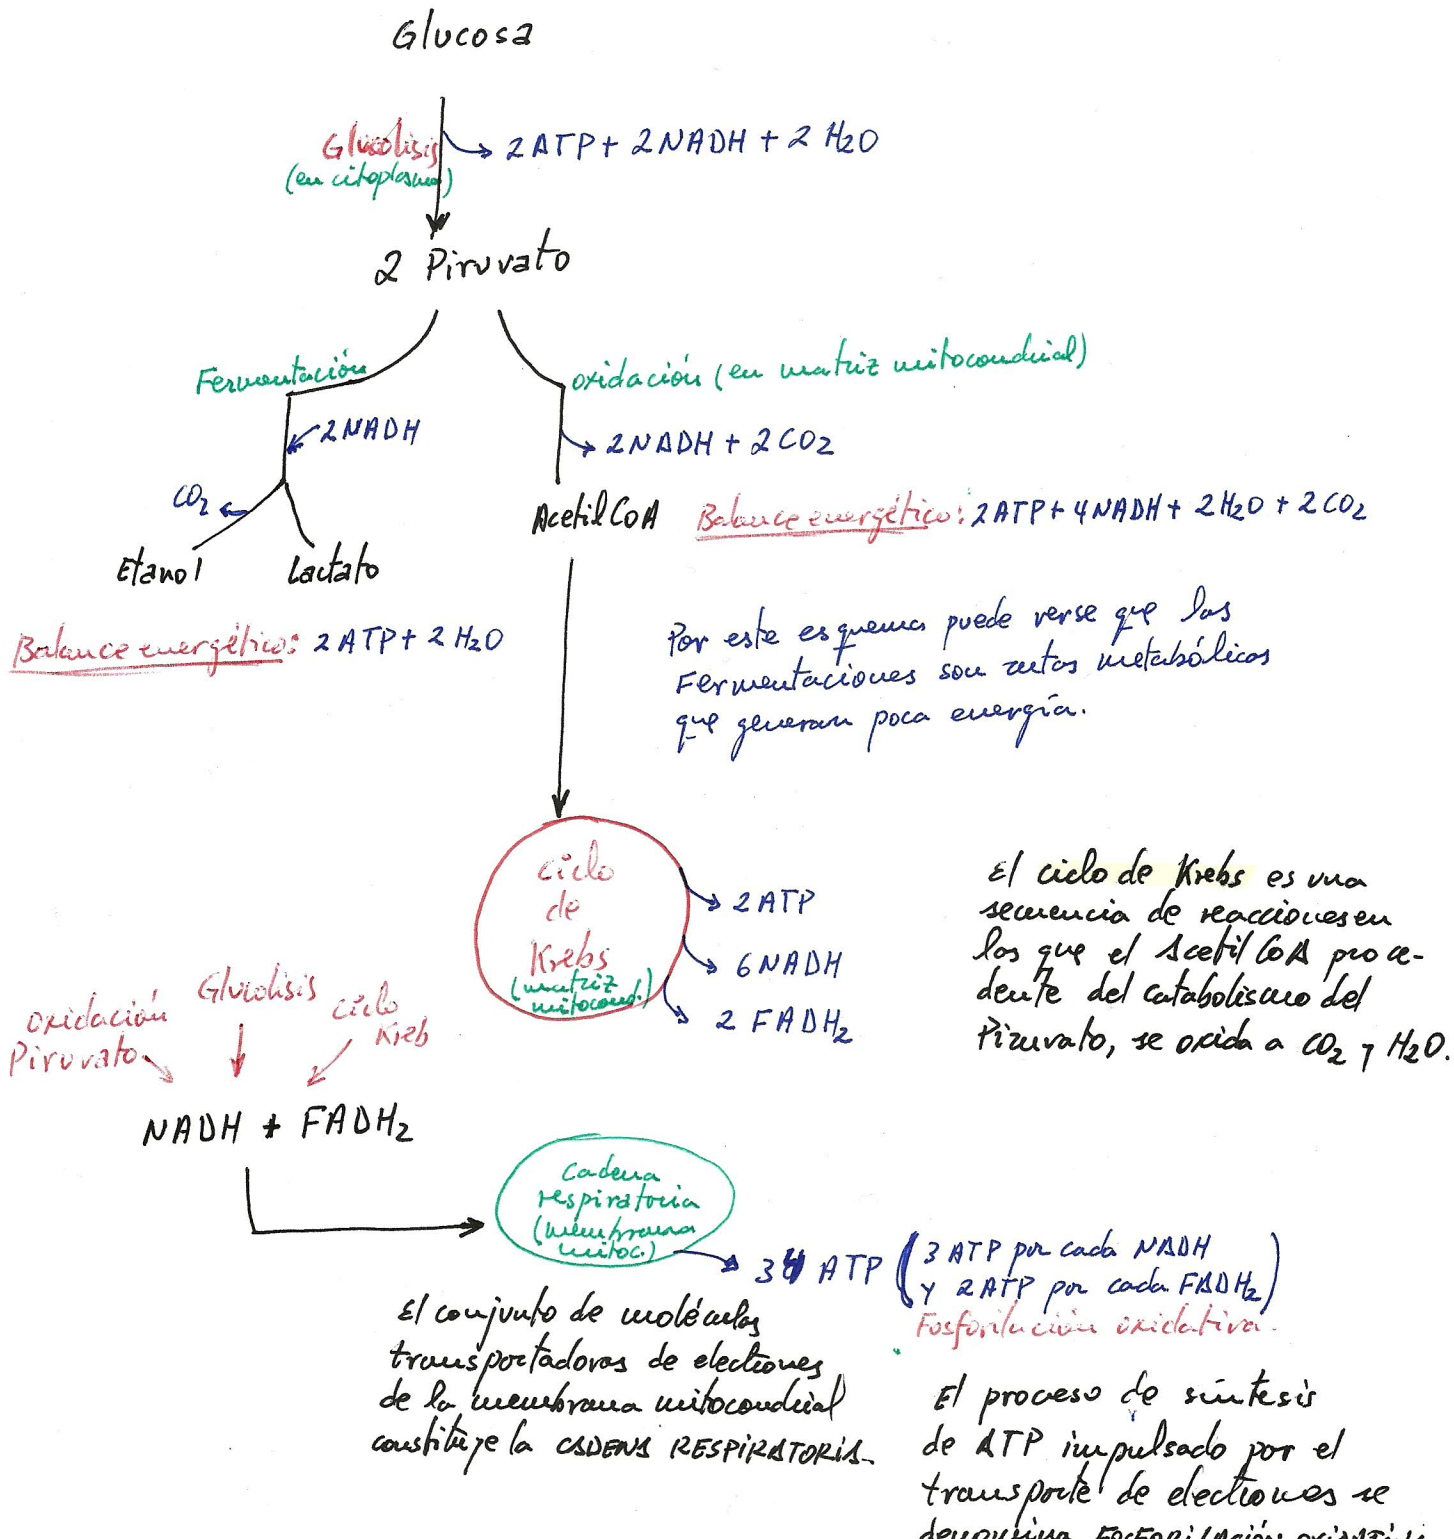 Glucosa
Glucolisis
(en citoplasma)
2 ATP + 2 NADH + 2 H2O
2 Piruvato
Fermentación
oxidación (en matriz mitocondrial)
2 NADH
2 NADH + 2 CO2
CO2
Acetil CoA
Balance energético: 2 ATP + 4 NADH + 2 H2O + 2 CO2
Etanol
Lactato
Balance energético: 2 ATP + 2 H2O
Por este esquema puede verse que las
Fermentaciones son rutas metabólicas
que generan poca energía.
Ciclo
de
Krebs
(matriz
mitocond.)
2 ATP
6 NADH
2 FADH2
El ciclo de Krebs es una
secuencia de reacciones en
las que el Acetil CoA proce-
dente del catabolismo del
Piruvato, se oxida a CO2 y H2O.
oxidación
Piruvato
Glucolisis
ciclo
Kreb
NADH + FADH2
Cadena
respiratoria
(membrana
mitoc.)
34 ATP
(3 ATP por cada NADH
y 2 ATP por cada FADH2)
Fosforilación oxidativa.
El conjunto de moléculas
transportadoras de electrones
de la membrana mitocondrial
constituye la CADENA RESPIRATORIA.
El proceso de síntesis
de ATP impulsado por el
transporte de electrones se
denomina FOSFORILACIÓN OXIDATIVA